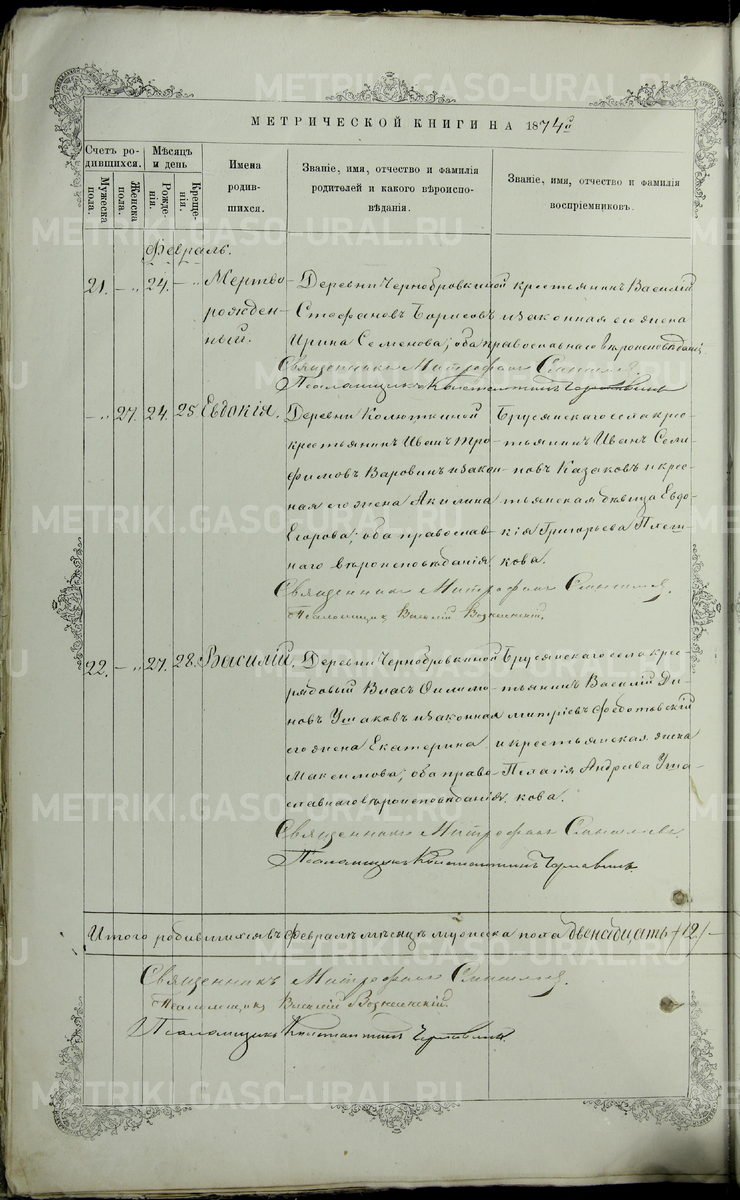 МЕТРИЧЕСКОЙ КНИГИ НА 1874й
Счетъ родившихся.
Мѣсяцъ и день
Имена родившихся.
Званіе, имя, отчество и фамилія родителей и какого вѣроисповѣданія.
Званіе, имя, отчество и фамилія воспріемниковъ.
Мужеска пола.
Женска пола.
Рожденія.
Крещенія.
Февраль.
21. — „ 24. — „ Мертво-
рожден-
ный.
Деревни Чернобровкиной крестьянинъ Василій
Стефановъ Борисовъ и законная его жена
Ирина Семенова; оба православнаго вѣроисповѣданія
Священникъ Митрофанъ
Псаломщикъ Константинъ
— „ 27. 24. 25. Евдокія.
Деревни Колюткиной
крестьянинъ Иванъ Тро-
фимовъ Варовинъ и закон-
ная его жена Акилина
Егорова; оба православ-
наго вѣроисповѣданія
Брусянскаго села крес-
тьянинъ Иванъ Семе-
новъ Казаковъ и крес-
тьянская дѣвица Евдо-
кія Григорьева Плеш-
кова.
Священникъ Митрофанъ
Псаломщикъ Василій Вознесенскій.
22. — „ 27. 28. Василій.
Деревни Чернобровкиной
рядовый Власъ Филимо-
новъ Ушаковъ и законная
его жена Екатерина
Максимова; оба право-
славнаго вѣроисповѣданія.
Брусянскаго села крес-
тьянинъ Василій Ди-
митріевъ Ѳедотовскій
и крестьянская жена
Пелагія Андрева Уша-
кова.
Священникъ Митрофанъ
Псаломщикъ Константинъ
Итого родившихся въ Февралѣ мѣсяцѣ мужеска пола двенадцать /12/ —
Священникъ Митрофанъ
Псаломщикъ Василій Вознесенскій.
Псаломщикъ Константинъ
METRIKI.GASO-URAL.RU